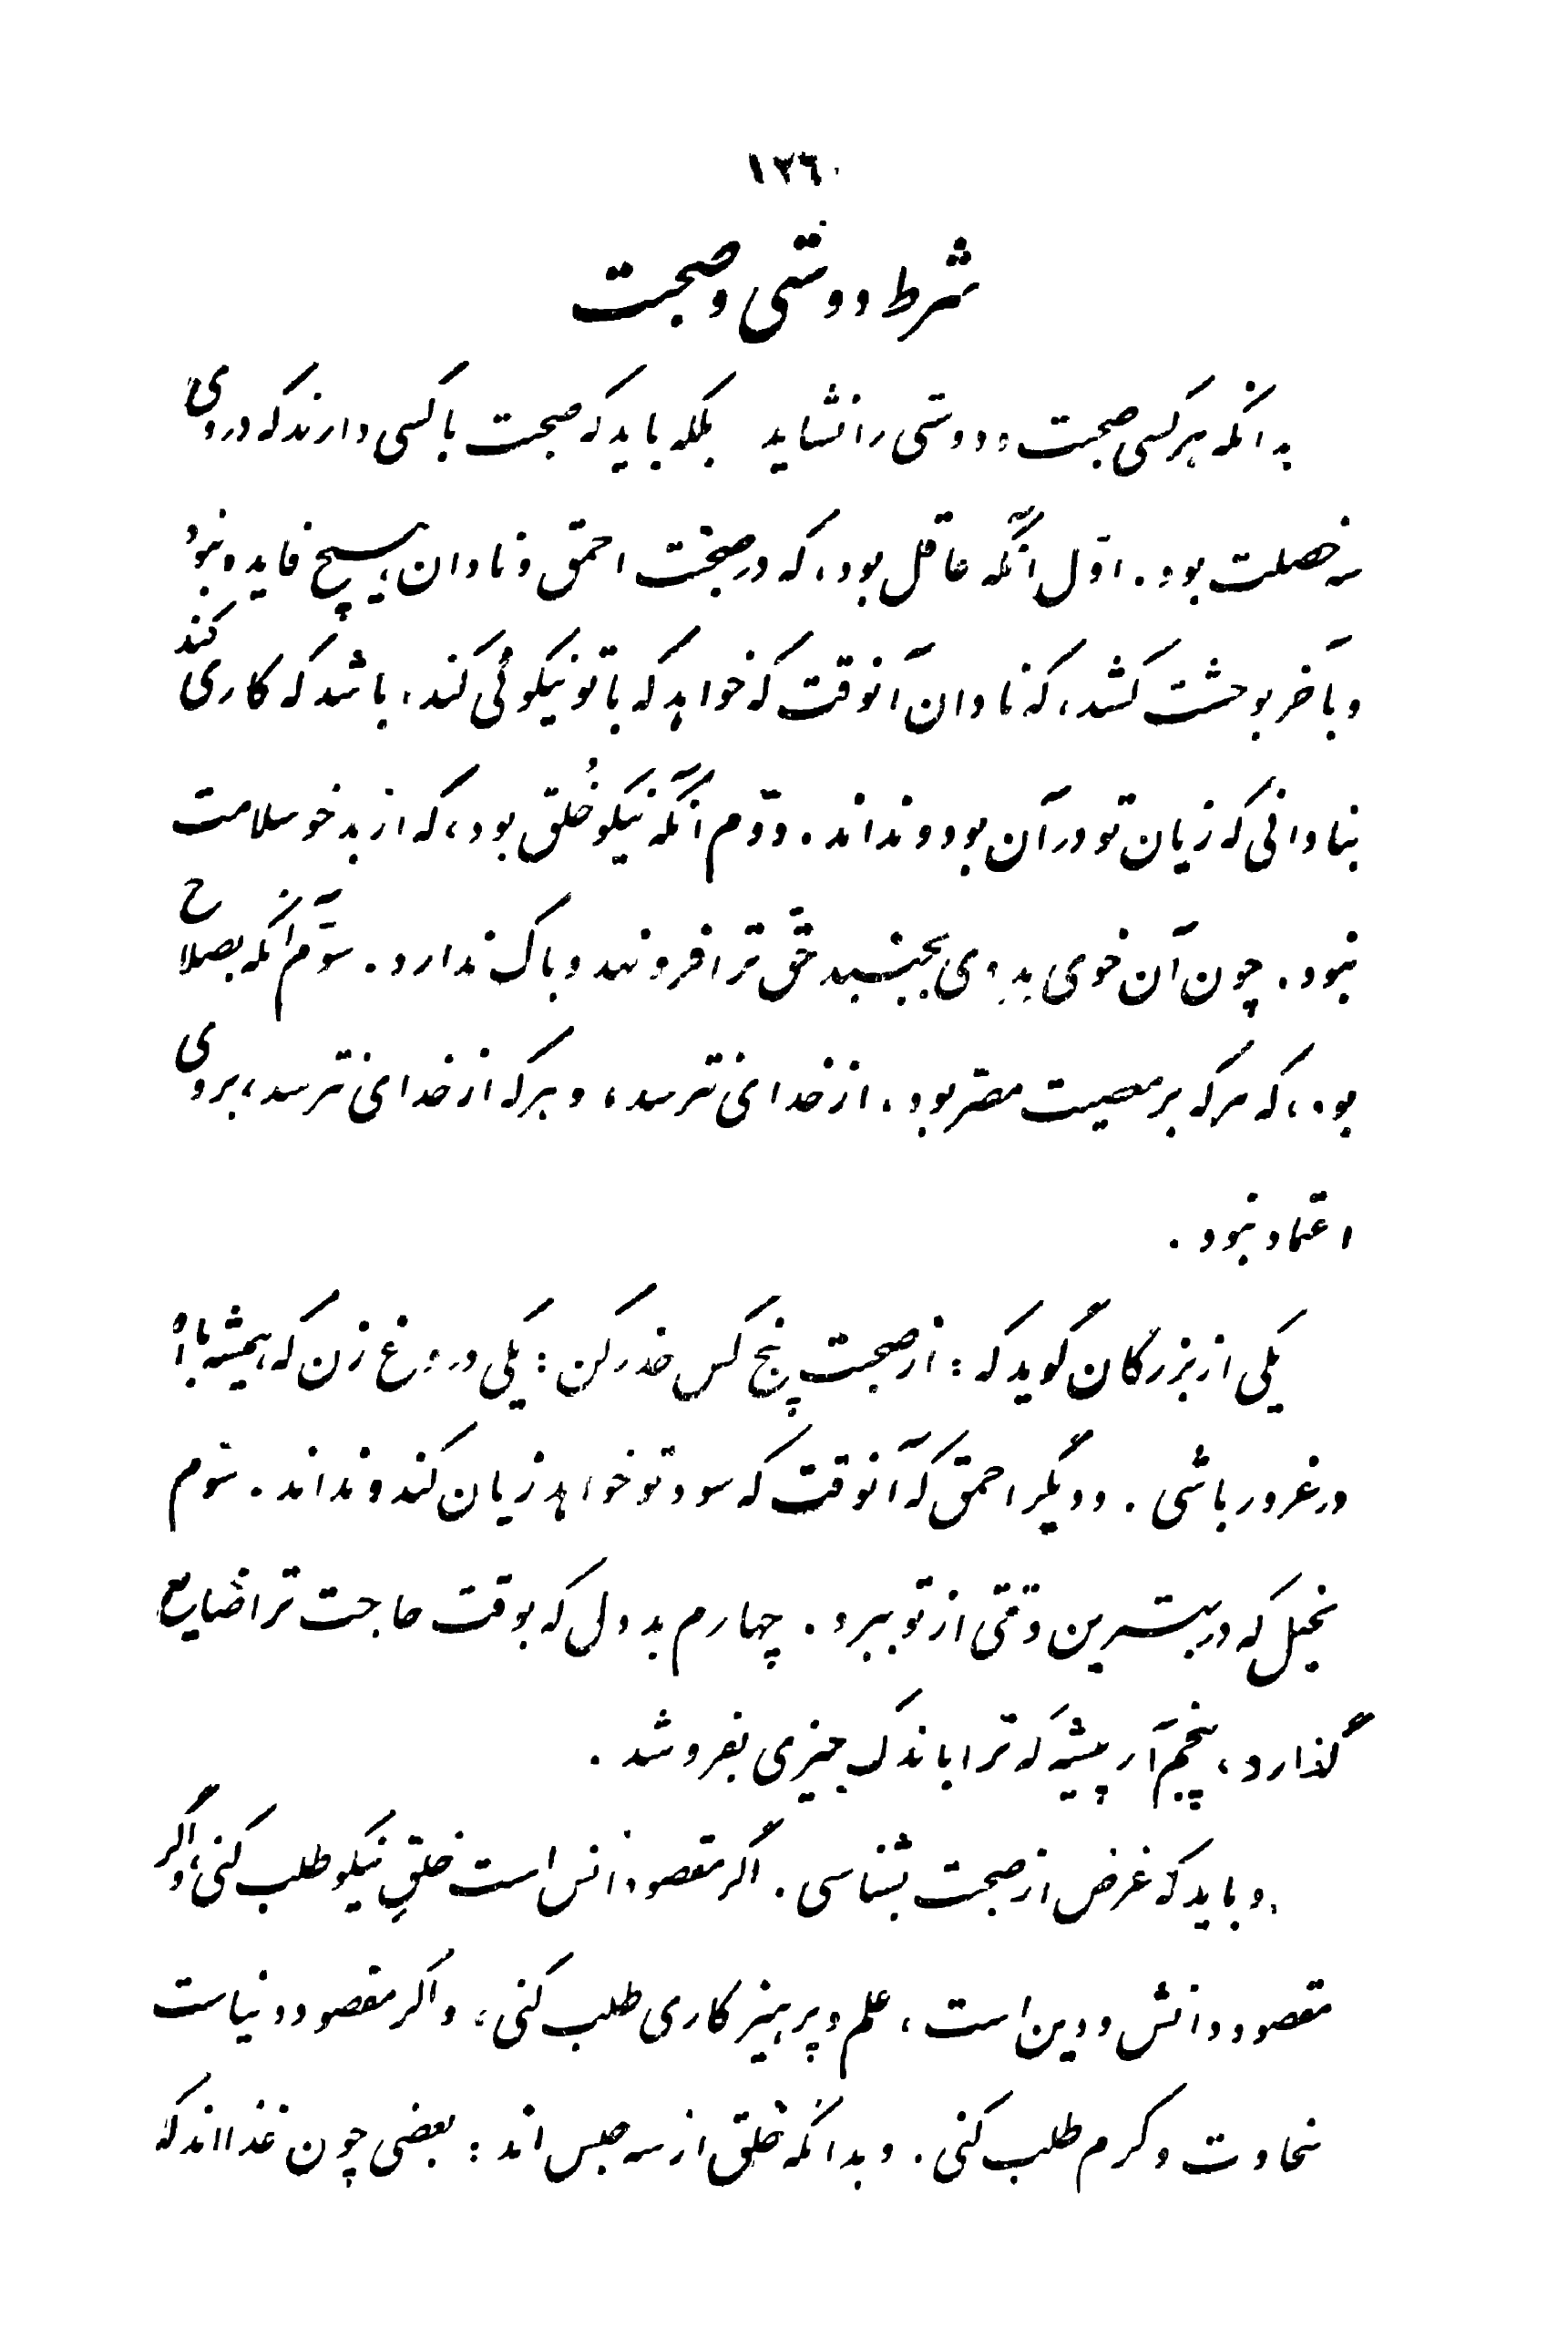 ١٢٦
شرط دوستی و صحبت
بدانکه هر کسی صحبت و دوستی را نشاید بلکه باید که صحبت با کسی دارند که در وی
سه خصلت بود. اوّل آنکه عاقل بود، که در صحبت احمق و نادان هیچ فایده نبود
و بآخر بوحشت کشد، که نادان آنوقت که خواهد که با تو نیکوئی کند، باشد که کاری کند
بنادانی که زیان تو در آن بود و نداند. دوّم آنکه نیکو خُلق بود، که از بدخو سلامت
نبود. چون آن خوی بد وی بجنبد حقّ ترا فرو نهد و باک ندارد. سوّم آنکه بصلاح
بود، که هر که بر معصیت مصرّ بود، از خدای نترسد، و هر که از خدای نترسد، بر وی
اعتماد نبود.
یکی از بزرگان گوید که: از صحبت پنج کس حذر کن: یکی دروغ زن که همیشه با او
در غرور باشی. و دیگر احمق که آنوقت که سود تو خواهد زیان کند و نداند. سوّم
بخیل که در بهترین وقتی از تو ببرد. چهارم بد دل که بوقت حاجت ترا ضایع
گذارد، پنجم آز پیشه که ترا باندک چیزی بفروشد.
و باید که غرض از صحبت بشناسی. اگر مقصود انس است خلقِ نیکو طلب کنی، و اگر
مقصود دانش و دین است، علم و پرهیزکاری طلب کنی، و اگر مقصود دنیاست
سخاوت و کرم طلب کنی. و بدانکه خلق از سه جنس اند: بعضی چون غذااند که